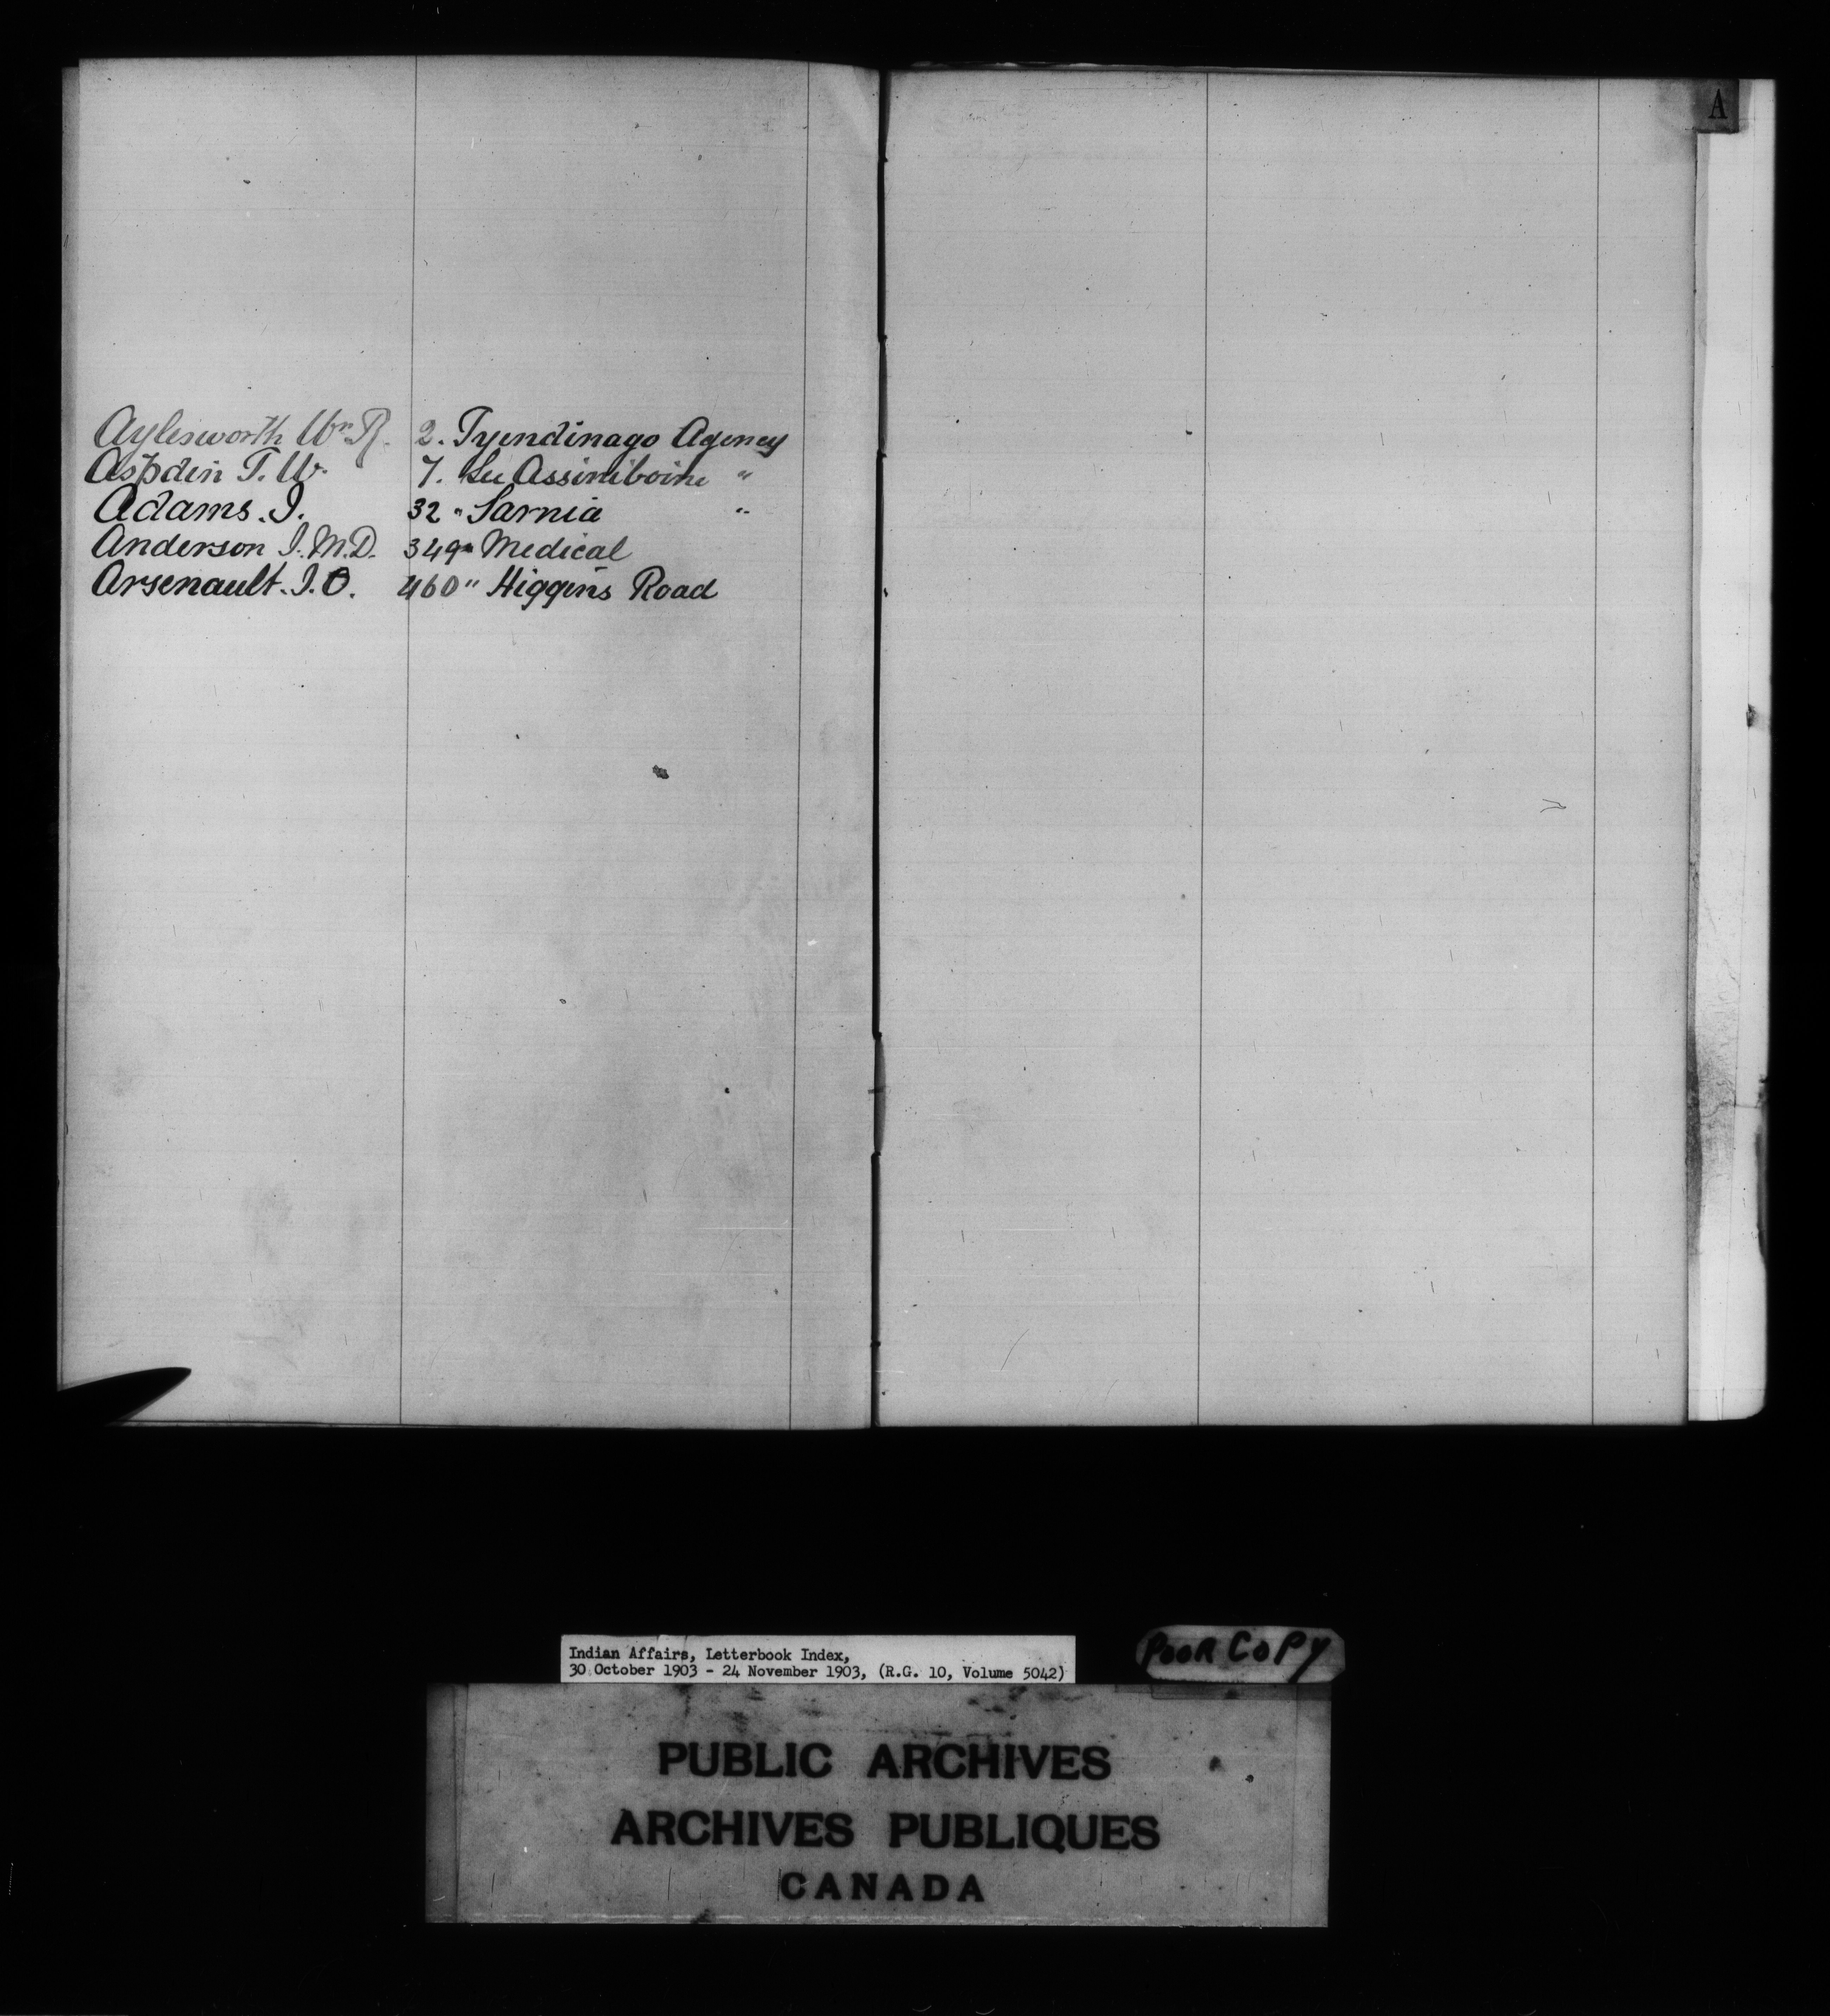 A
Aylesworth Wm R. 2. Tyendinago Agency
Aspdin T. W. 7. See Assiniboine "
Adams. J. 32 " Sarnia "
Anderson J. M.D. 349 " Medical
Arsenault. J. O. 460 " Higgins Road
Indian Affairs, Letterbook Index,
30 October 1903 - 24 November 1903, (R.G. 10, Volume 5042)
POOR COPY
PUBLIC ARCHIVES
ARCHIVES PUBLIQUES
CANADA